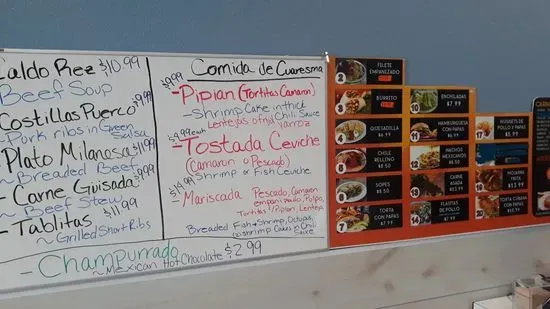 Caldo Rez $10.99
Beef Soup
Costillas Puerco $9.99
~Pork ribs in Green Salsa
Plato Milanosa $9.99
~Breaded Beef
-Carne Guisada $9.99
~Beef Stew
-Tablitas $11.99
~Grilled Short Ribs
Comida de Cuaresma
$9.99
-Pipian (Tortitas Camaron)
-Shrimp Cake in thick Chili Sauce
Lentejas y arroz
$4.99 each
-Tostada Ceviche
(Camaron o Pescado)
Shrimp or Fish Ceviche
$14.99
-Mariscada Pescado, Camaron
empanizado, Pulpo,
Tortitas/Pipian Lenteja
Breaded Fish + Shrimp, Octupus,
shrimp Cakes in Chili
Sauce
-Champurrado $2.99
~Mexican Hot Chocolate
2 FILETE
EMPANIZADO
3 BURRITO
4 QUESADILLA
$7.99
5 CHILE
RELLENO
$8.50
6 SOPES
$8.50
7 TORTA
CON PAPAS
$8.99
10 ENCHILADAS
$7.99
11 HAMBURGUESA
CON PAPAS
$7.99
NACHO
MEXICANOS
$8.50
CARNE
ASADA
FLAUTAS
DE POLLO
17 NUGGETS
DE POLLO
Y PAPAS
MOJARRA
FRITA
20 TORTA CUBANA
CON PAPAS